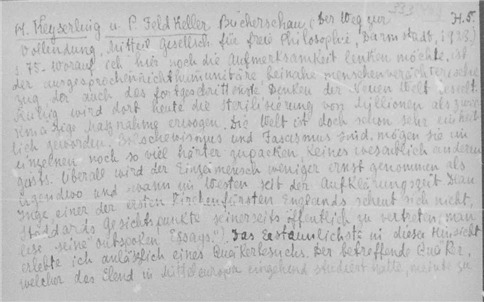 W. Keyserling u. P. Feldkeller Bücherschau (Der Weg zur H.S.
Vollendung, Mitteil Gesellsch für freie Philosophie, Darmstadt, 1928,)
s 75. Worauf ich hier noch die Aufmerksamkeit lenken möchte, ist
der ausgesprochen nicht humanitäre beinahe menschenverächterische
Zug der auch das fortgeschrittenste Denken der Neuen Welt beseelt.
Ruhig wird dort heute die Sterilisierung von Millionen als zweck
mässige Massnahme erwogen. Die Welt ist doch schon sehr einheit
lich geworden. Bolschewismus und Fascismus sind, mögen sie im
einzelnen noch so viel härter zupacken, keines wesentlich anderen
Geists. Überall wird der Einzelmensch weniger ernst genommen als
irgendwo und wann im Westen seit der Aufklärungszeit. Dean
Inge einer der ersten Kirchenfürsten Englands scheut sich nicht,
Stoddards Gesichtspunkte seinerseits öffentlich zu vertreten, man
lese seine "outspoken Essays"). Das Erstaunlichste in dieser Hinsicht
erlebte ich anlässlich eines Quäkerbesuchs. Der betreffende Quäker,
welcher das Elend in Mitteleuropa eingehend studiert hatte, meinte zu